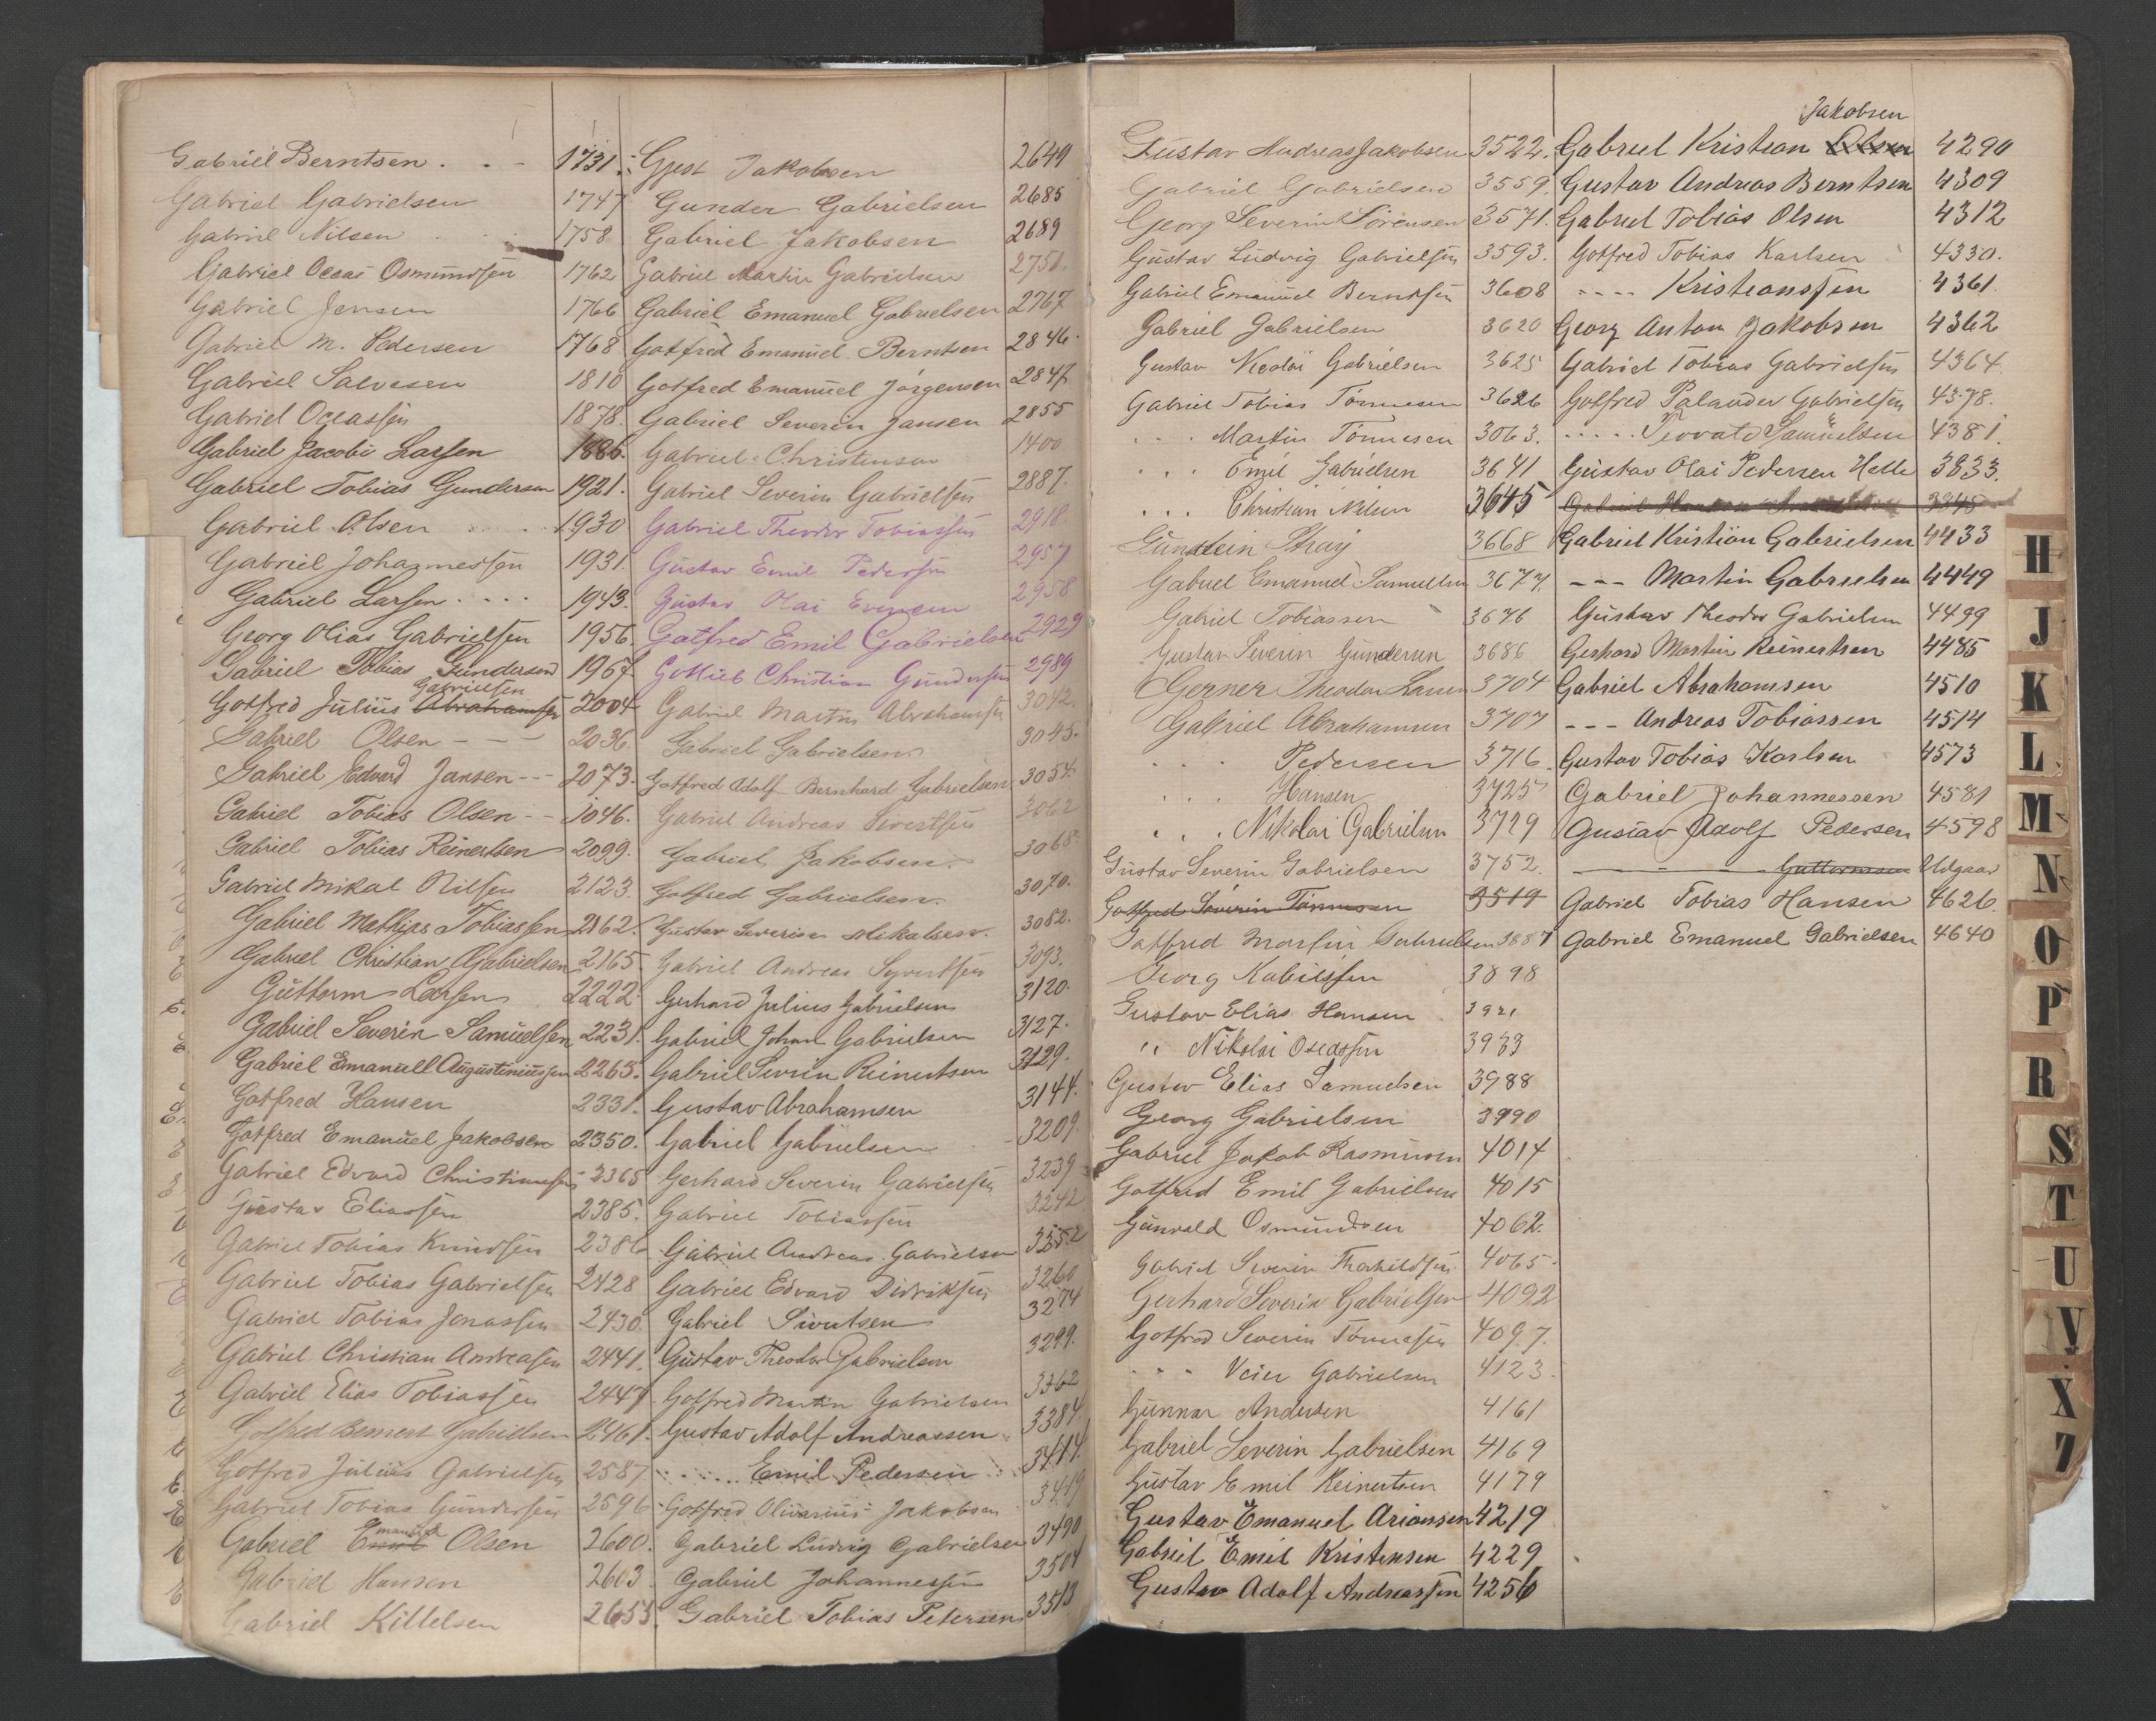 Gabriel Berntsen . . - 1731.
Gabriel Gabrielsen 1747
Gabriel Nilsen . . . 1758
Gabriel Oceas Osmundsen 1762
Gabriel Jensen 1766
Gabriel M. Pedersen 1768
Gabriel Salvesen 1810
Gabriel Oceassen 1878.
Gabriel Jacobi Larsen 1886.
Gabriel Tobias Gundersen 1921.
Gabriel Olsen 1930
Gabriel Johannessen 1931.
Gabriel Larsen . . . . 1943.
Georg Olias Gabrielsen 1956
Gabriel Tobias Gundersen 1967
Gabrielsen
Gotfred Julius Abrahamsen 2004
Gabriel Olsen - - - 2036.
Gabriel Edvard Jansen - - - 2073.
Gabriel Tobias Olsen - - 1046.
Gabriel Tobias Reinertsen 2099.
Gabriel Mikal Nilsen 2123.
Gabriel Mathias Tobiassen 2162.
Gabriel Christian Gabrielsen 2165.
Guttorm Larsen 2222.
Gabriel Severin Samuelsen 2231.
Gabriel Emanuell Augustiniussen 2265.
Gotfred Hansen 2331.
Gotfred Emanuel Jakobsen 2350.
Gabriel Edvard Christiansen 2365
Gustav Eliassen 2385.
Gabriel Tobias Knudsen 2386
Gabriel Tobias Gabrielsen 2428
Gabriel Tobias Jonassen 2430.
Gabriel Christian Andreasen 2441.
Gabriel Elias Tobiassen 2447
Gotfred Bernert Gabrielsen 2461.
Gotfred Julius Gabrielsen 2587.
Gabriel Tobias Gundersen 2596
Emanuel
Gabriel Emil Olsen 2600.
Gabriel Hansen 2603.
Gabriel Killelsen 2655.
Gjest Jakobsen 2649
Gunder Gabrielsen 2685
Gabriel Jakobsen 2689
Gabriel Martin Gabrielsen 2751.
Gabriel Emanuel Gabrielsen 2767
Gotfred Emanuel Berntsen 2846.
Gotfred Emanuel Jörgensen 2847
Gabriel Severin Jansen 2855
Gabriel Christensen 1400
Gabriel Severin Gabrielsen 2887.
Gabriel Theodor Tobiassen 2918.
Gustav Emil Pedersen 2957
Gustav Olai Evensen 2958
Gotfred Emil Gabrielsen 2929
Gotlieb Christian Gundersen 2989
Gabriel Martin Abrahamsen 3042.
Gabriel Gabrielsen 3045.
Gotfred Adolf Bernhard Gabrielsen 3054.
Gabriel Andreas Sivertsen 3062
Gabriel Jakobsen. 3068.
Gotfred Gabrielsen. 3070.
Gustav Severin Mikalsen. 3082.
Gabriel Andreas Syvertsen 3093.
Gerhard Julius Gabrielsen 3120.
Gabriel Johan Gabrielsen 3127.
Gabriel Severin Reinertsen 3129.
Gustav Abrahamsen 3144.
Gabriel Gabrielsen 3209.
Gerhard Severin Gabrielsen 3239
Gabriel Tobiassen 3242
Gabriel Andreas Gabrielsen 3252
Gabriel Edvard Didriksen 3260
Gabriel Sivertsen 3274
Gustav Theodor Gabrielsen 3299.
Gotfred Martin Gabrielsen 3362
Gustav Adolf Andreassen 3384.
. . . . . Emil Pedersen 3414.
Gotfred Olivarius Jakobsen 3419
Gabriel Ludvig Gabrielsen 3490
Gabriel Johannessen 3504
Gabriel Tobias Petersen 3513
Gustav Andreas Jakobsen 3522.
Gabriel Gabrielsen 3559.
Georg Severin Sörensen 3571.
Gustav Ludvig Gabrielsen 3593.
Gabriel Emanuel Berntsen 3608
Gabriel Gabrielsen 3620
Gustav Nicolai Gabrielsen 3625
Gabriel Tobias Tönnesen 3626
. . . Martin Tönnesen 3063.
. . . Emil Gabrielsen 3641
. . . Christian Nilsen 3645
Gunstein Skaj 3668
Gabriel Emanuel Samuelsen 3677.
Gabriel Tobiassen 3676
Gustav Severin Gundersen 3686
Gerner Theodor Larsen 3704
Gabriel Abrahamsen 3707
. . . Pedersen 3716
. . . Hansen 3725
. . . Nikolai Gabrielsen 3729
Gustav Severin Gabrielsen 3752.
Gotfred Severin Tönnesen 3519
Gotfred Martin Gabrielsen 3887
Georg Kabielssen 3898
Gustav Elias Hansen 3921
" Nikolai Osedssen 3933
Gustav Elias Samuelsen 3988
Georg Gabrielsen 3990
Gabriel Jakob Rasmusen 4014
Gotfred Emil Gabrielsen 4015
Gunvald Osmundsen 4062.
Gabriel Severin Thorkildsen 4065.
Gerhard Severin Gabrielsen 4092
Gotfred Severin Tönnesen 4097.
. . . Veier Gabrielsen 4123.
Gunnar Andersen 4161
Gabriel Severin Gabrielsen 4169
Gustav Emil Reinertsen 4179
Gustav Emanuel Ariansen 4219
Gabriel Emil Kristensen 4229
Gustav Adolf Andreassen 4256
Jakobsen
Gabriel Kristian Olsen 4290
Gustav Andreas Berntsen 4309
Gabriel Tobias Olsen 4312
Gotfred Tobias Karlsen 4330.
- - - - Kristianssen 4361.
Georg Anton Jakobsen 4362
Gabriel Tobias Gabrielsen 4364.
Gotfred Palander Gabrielsen 4378.
. . . . . Samuelsen 4381.
Gustav Olai Pedersen Helle 3833.
Gabriel 3345
Gabriel Kristian Gabrielsen 4433
- - - Martin Gabrielsen 4449
Gustav Theodor Gabrielsen 4499
Gerhard Martin Reinertsen 4485
Gabriel Abrahamsen 4510
- - - Andreas Tobiassen 4514
Gustav Tobias Karlsen 4573
Gabriel Johannessen 4581
Gustav Adolf Pedersen 4598
- - - - Guttormsen Udgaar
Gabriel Tobias Hansen 4626.
Gabriel Emanuel Gabrielsen 4640
H
J
K
L
M
N
O
P
R
S
T
U
V
X
Z